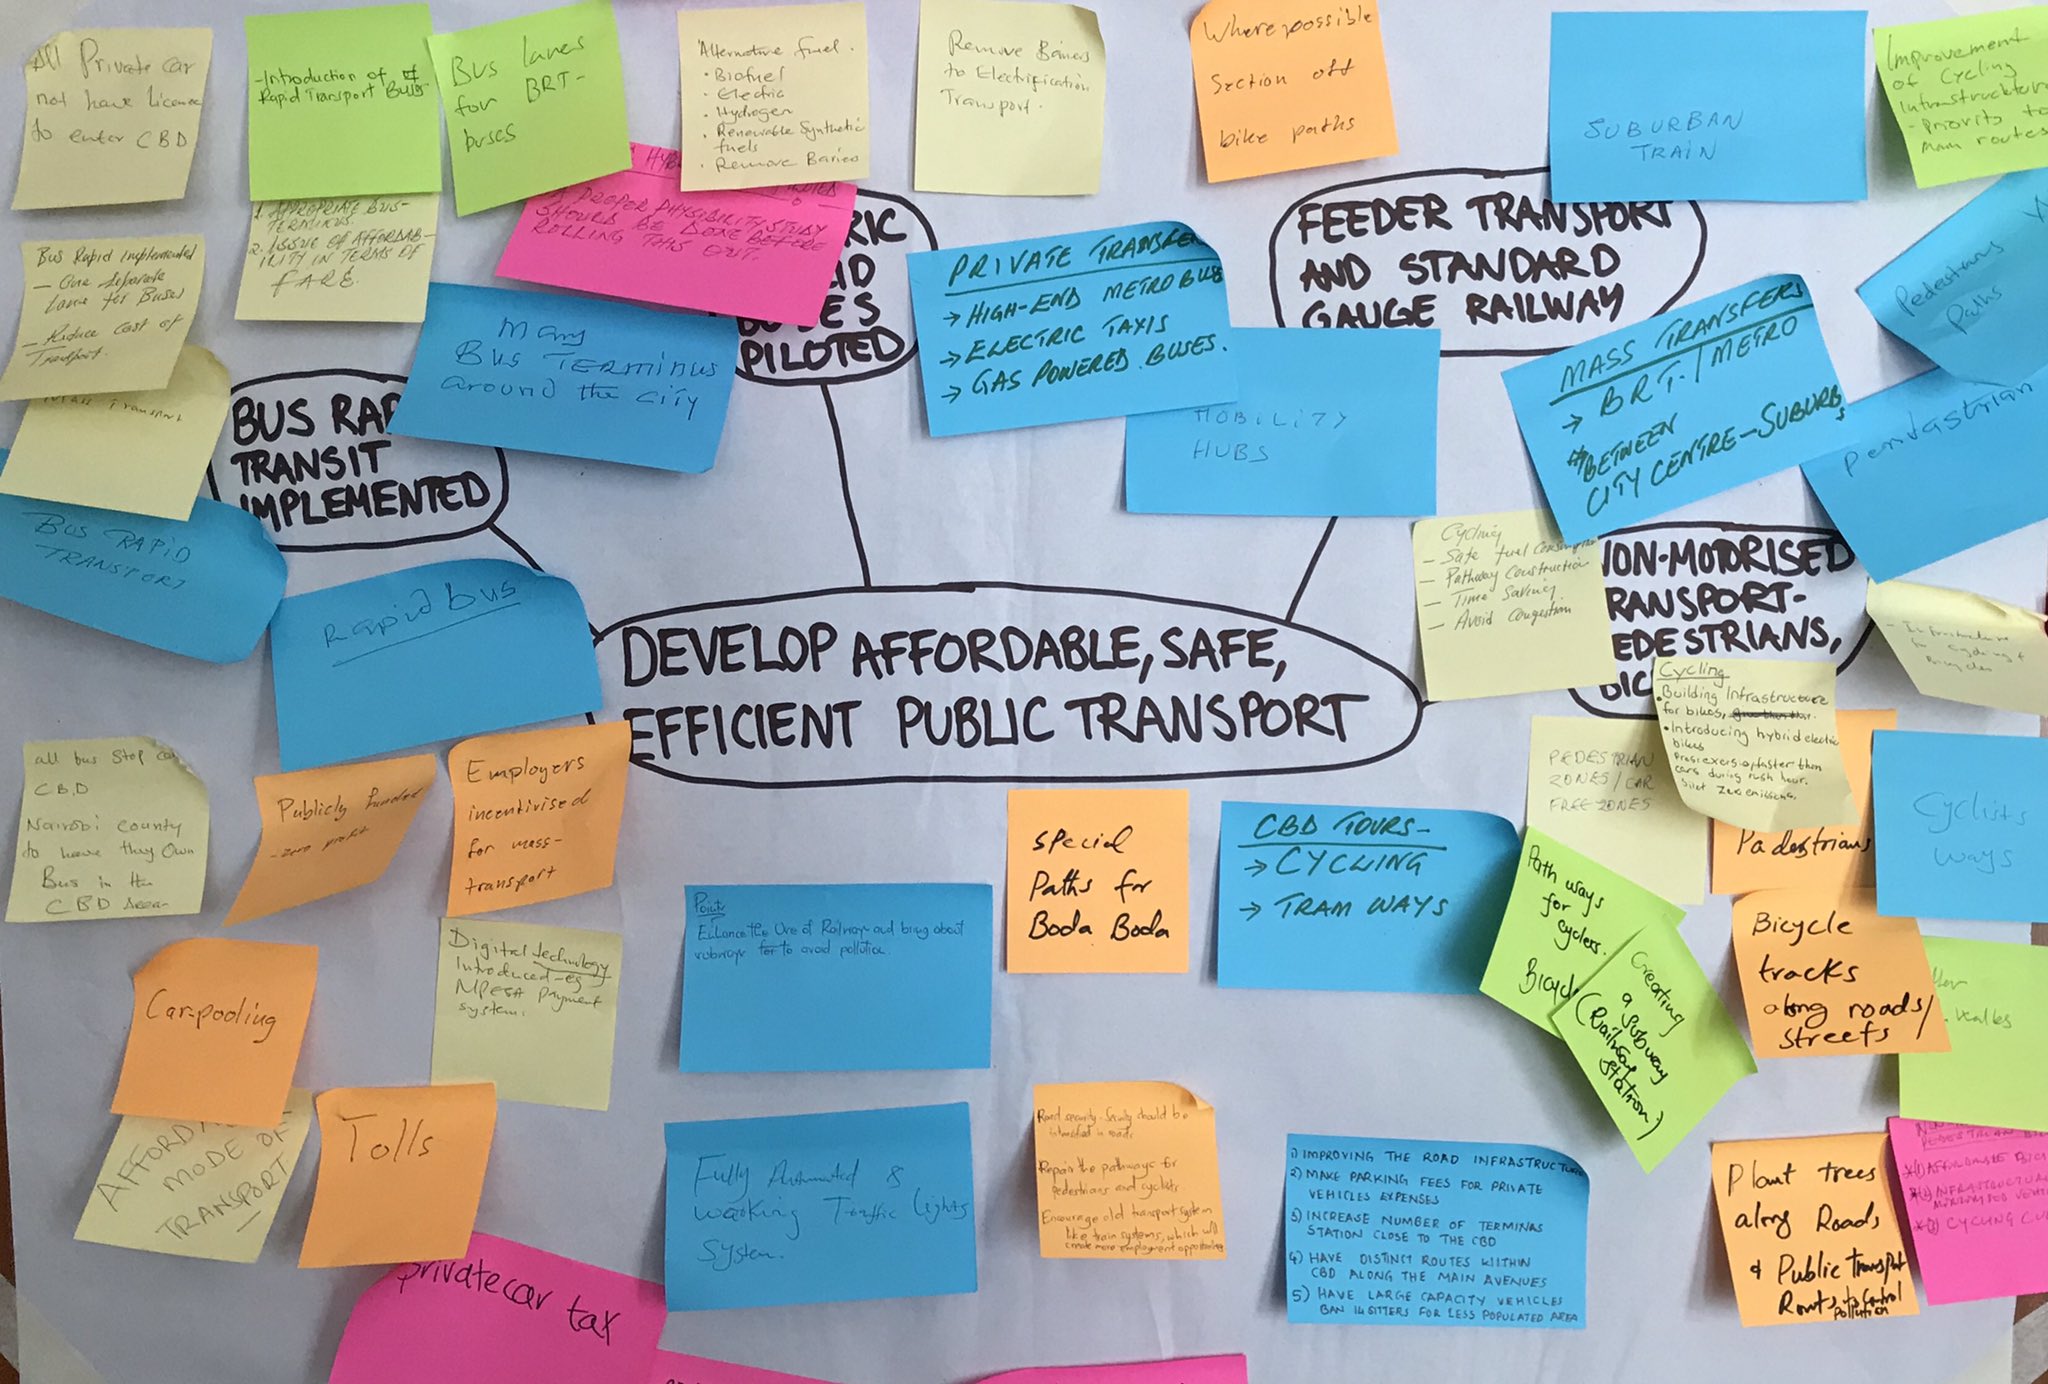 All Private car
not have Licence
to enter CBD
-Introduction of
Rapid Transport Buses
Bus lanes
for BRT-
buses
Alternative fuel.
• Biofuel
• Electric
• Hydrogen
• Renewable Synthetic
fuels
• Remove Bariers
Remove Barriers
to Electrification
Transport.
Where possible
Section off
bike paths
SUBURBAN
TRAIN
Improvement
of Cycling
Intrastructure
- Priority to
main routes
1. APPROPRIATE BUS-
TERMINUS
2. ISSUE OF AFFORDAB-
ILITY IN TERMS OF
FARE.
A PROPER PHYSIBILITY STUDY
SHOULD BE DONE BEFORE
ROLLING THIS OUT.
RIC
ID
PILOTED
PRIVATE TRANSFE
→ HIGH-END METRO BUS
→ ELECTRIC TAXIS
→ GAS POWERED BUSES.
FEEDER TRANSPORT
AND STANDARD
GAUGE RAILWAY
Pedestrians
Paths
Bus Rapid Implemented
- One Separate
Lane for Buses
- Reduce Cost of
Transport.
Many
Bus TERMINUS
around the city
MOBILITY
HUBS
MASS TRANSFERS
→ BRT / METRO
#BETWEEN
CITY CENTRE-SUBURBS
pentastrian
Mass Transport
BUS RAP
TRANSIT
IMPLEMENTED
BUS RAPID
TRANSPORT
Rapid bus
Cycling
- Safe fuel Consumption
- Pathway Construction
- Time Saving
- Avoid Congestion
NON-MOTORISED
RANSPORT-
EDESTRIANS,
BIC
DEVELOP AFFORDABLE, SAFE,
EFFICIENT PUBLIC TRANSPORT
Cycling
• Building Infrastructure
for bikes,
• Introducing hybrid electric
bikes
cars during rush hour.
PEDESTRIAN
ZONES/CAR
FREE ZONES
Padestrians
Cyclists
ways
all bus stop
CBD
Nairobi County
to have they Own
Bus in the
CBD Area
Publicly funded
- zero profit
Employers
incentivised
for mass-
transport
Special
Paths for
Boda Boda
CBD TOURS-
→ CYCLING
→ TRAM WAYS
Path ways
for
cyclers.
Bicycl
Creating
a Subway
(Railroad
station)
Bicycle
tracks
along roads/
streets
walks
Points
Enhance the Use of Railway and bring about
subways for to avoid pollution.
Digital technology
Introduced-eg
MPESA payment
system.
Car-pooling
AFFORDA
MODE OF
TRANSPORT
Tolls
Fully Automated &
working Traffic lights
System.
Road security-Security should be
intensified in roads.
Repair the pathways for
pedestrians and cyclists.
Encourage old transport system
like train systems, which will
create more employment opportunities
1) IMPROVING THE ROAD INFRASTRUCTURE
2) MAKE PARKING FEES FOR PRIVATE
VEHICLES EXPENSES
3) INCREASE NUMBER OF TERMINAS
STATION CLOSE TO THE CBD
4) HAVE DISTINCT ROUTES WITHIN
CBD ALONG THE MAIN AVENUES
5) HAVE LARGE CAPACITY VEHICLES
BAN 14 SITTERS FOR LESS POPULATED AREA
Plant trees
along Roads
& Public Transport
Routs to Control
pollution
CYCLING
private car tax